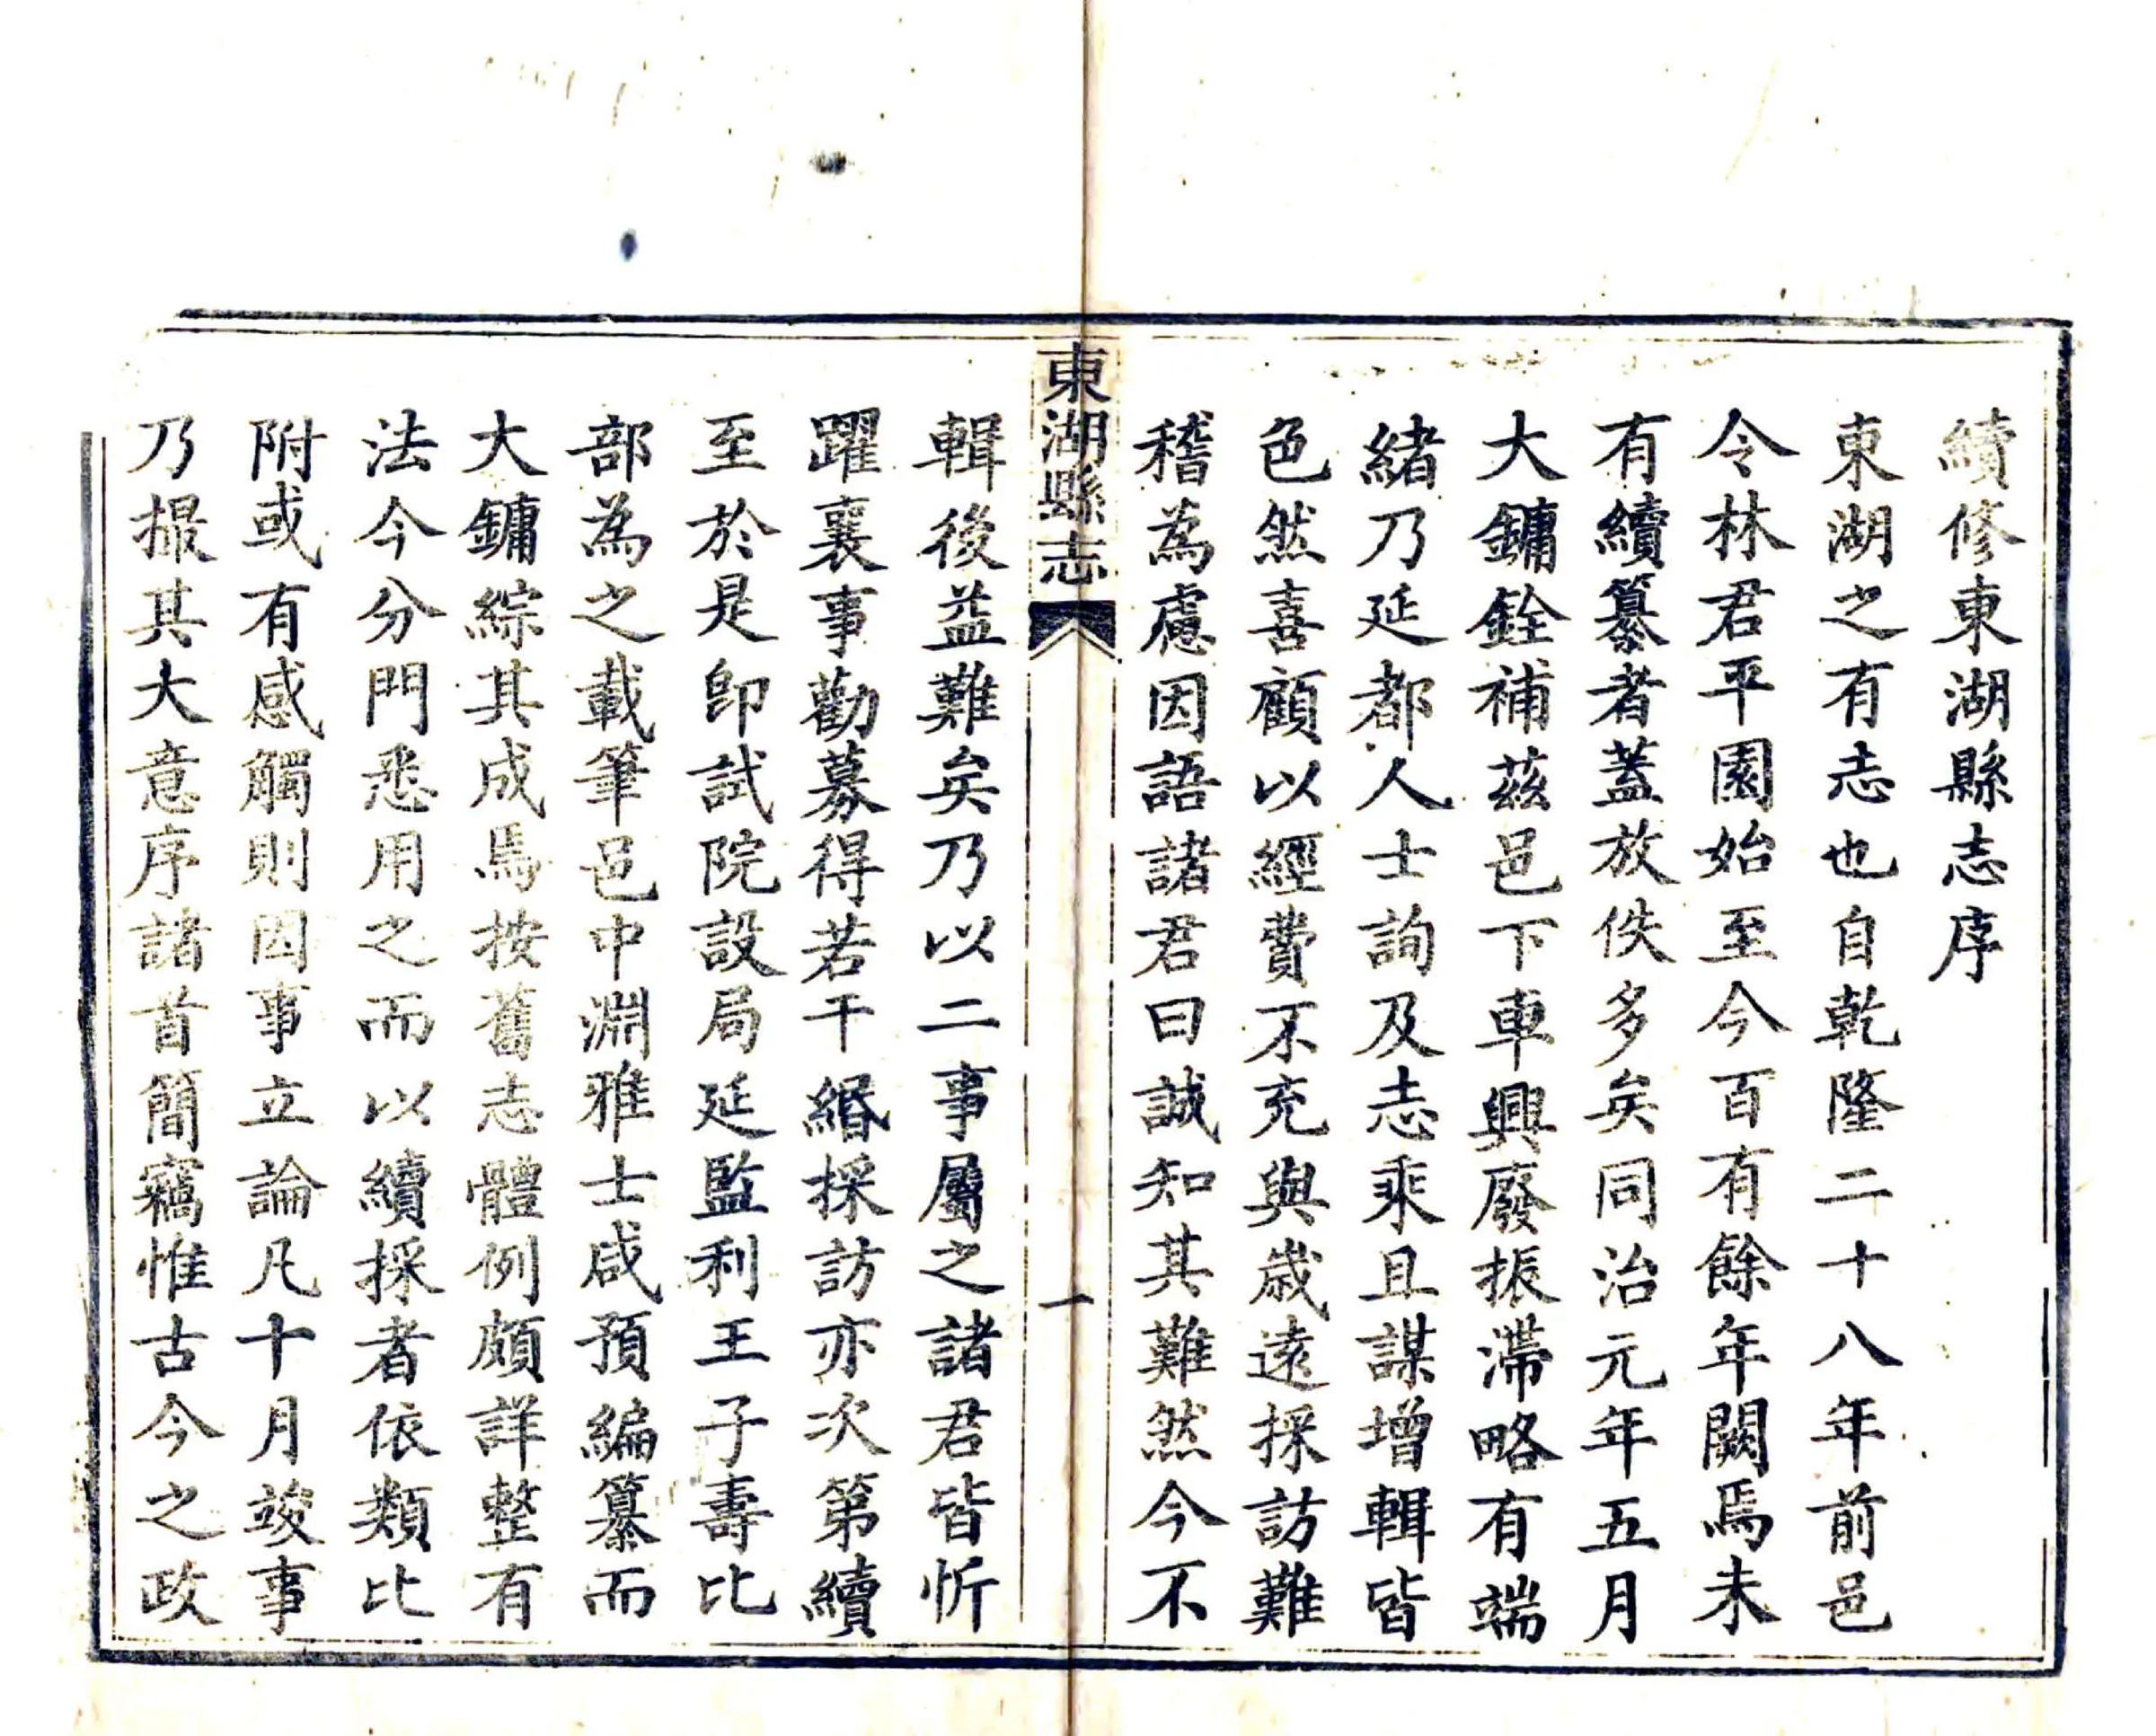 續修東湖縣志序
東湖之有志也自乾隆二十八年前邑
令林君平園始至今百有餘年闕焉未
有續纂者蓋放佚多矣同治元年五月
大鏞銓補茲邑下車興廢振滯略有端
緒乃延都人士詢及志乘且謀增輯皆
色然喜顧以經費不充與歲遠採訪難
稽為慮因語諸君曰誠知其難然今不
東湖縣志
一
輯後益難矣乃以二事屬之諸君皆忻
躍襄事勸募得若干緡採訪亦次第續
至於是卽試院設局延監利王子壽比
部為之載筆邑中淵雅士咸預編纂而
大鏞綜其成焉按舊志體例頗詳整有
法今分門悉用之而以續採者依類比
附或有感觸則因事立論凡十月竣事
乃撮其大意序諸首簡竊惟古今之政